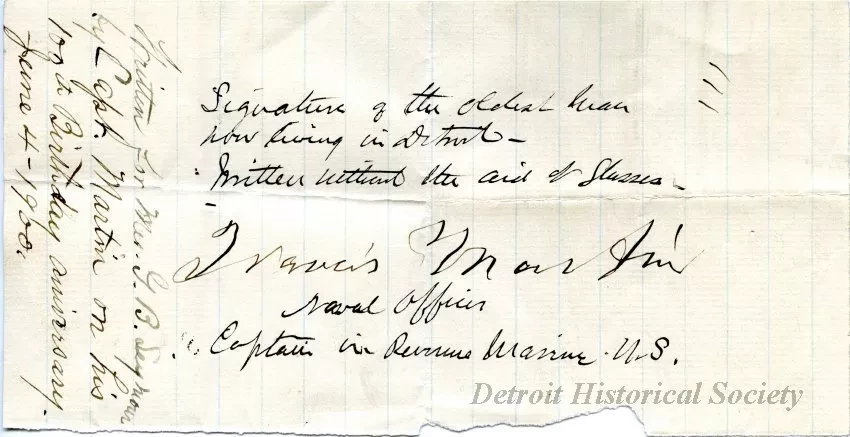 Signature of the oldest man
now living in Detroit –
Written without the aid of Glasses –
Francis Martin
Naval Officer
Captain in Revenue Marine U.S.
Written for Mrs. G. B. Seymour
by Capt. Martin on his
100th Birthday aniversary.
June 4 – 1900.
Detroit Historical Society